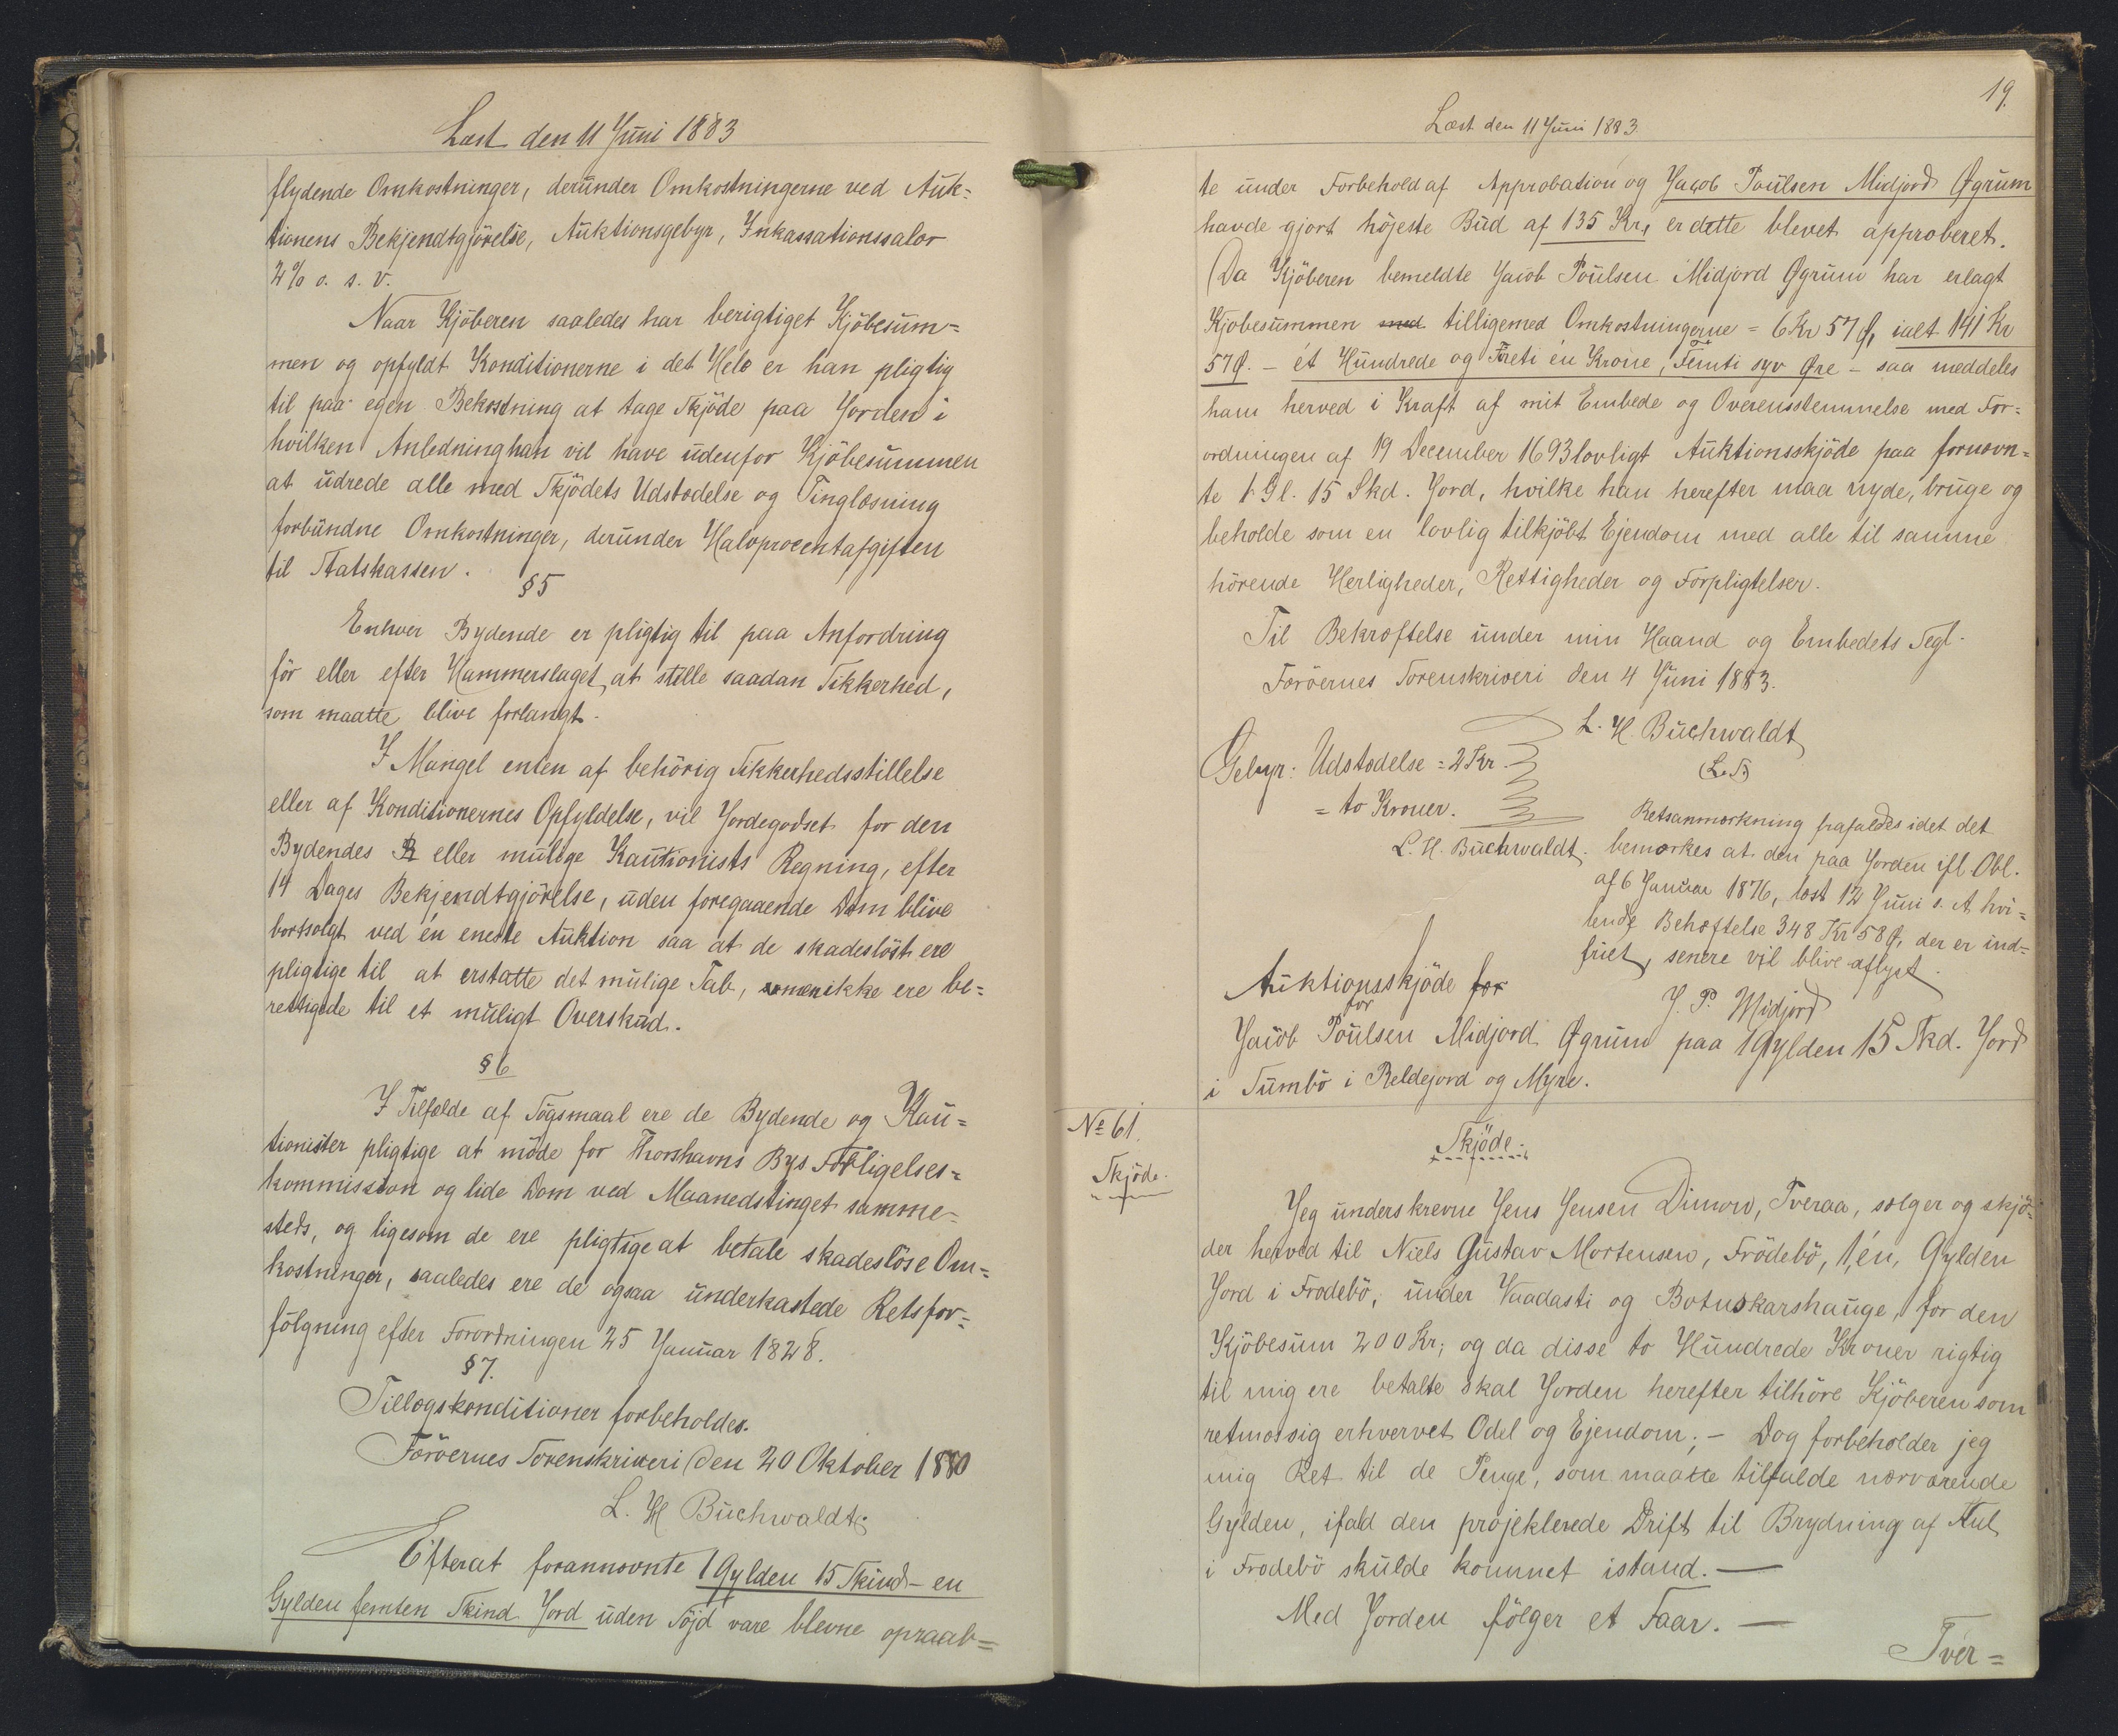 Læst den 11 Juni 1883
flydende Omkostninger, derunder Omkostningerne ved Auk=
tionens Bekjendtgjörelse, Auktionsgebyr, Inkassationssalær
2% o. s. v.
Naar Kjöberen saaledes har berigtiget Kjöbesum=
men og opfyldt Konditionerne i det Hele er han pligtig
til paa egen Bekostning at tage Skjöde paa Jorden i
hvilken Anledning han vil have udenfor Kjöbesummen
at udrede alle med Skjödets Udstædelse og Tinglæsning
forbundne Omkostninger, derunder Halvprocentafgiften
til Statskassen.
§5
Enhver Bydende er pligtig til paa Anfordring
för eller efter Hammerslaget, at stille saadan Sikkerhed,
som maatte blive forlangt.
I Mangel enten af behörig Sikkerhedsstillelse
eller af Konditionernes Opfyldelse, vil Jordegodset for den
Bydendes R eller mulige Kautionists Regning, efter
14 Dages Bekjendtgjörelse, uden foregaaende Dom blive
bortsolgt ved én eneste Auktion saa at de skadeslöst ere
pligtige til at erstatte det mulige Tab, men ikke ere be=
rettigede til et muligt Overskud.
§6
I Tilfælde af Sögsmaal ere de Bydende og Kau=
tionister pligtige at möde for Thorshavns Bys Forligelses=
kommission og lide Dom ved Maanedstinget samme=
steds, og ligesom de ere pligtige at betale skadeslöse Om=
kostninger, saaledes ere de ogsaa underkastede Retsfor=
fölgning efter Forordningen 25 Januar 1828.
§7.
Tillægskonditioner forbeholdes.
Færöernes Sorenskriveri den 20 Oktober 1880
L. H Buchwaldt
Efterat forannævnte 1 Gylden 15 Skind - en
Gylden femten Skind Jord uden Söjd vare blevne opraab=
19.
Læst den 11 Juni 1883.
te under Forbehold af Approbation og Jacob Poulsen Midjord Øgrum
havde gjort höjeste Bud af 135 Kr, er dette blevet approberet.
Da Kjöberen bemeldte Jacob Poulsen Midjord Øgrum har erlagt
Kjöbesummen med tilligemed Omkostningerne = 6 Kr 57 Ø, ialt 141 Kr
57 Ø. - ét Hundrede og Företi én Krone, Femti syv Øre - saa meddeles
ham herved i Kraft af mit Embede og Overensstemmelse med For=
ordningen af 19 December 1693 lovligt Auktionsskjöde paa fornævn=
te 1 Gl. 15 Skd. Jord, hvilke han herefter maa nyde, bruge og
beholde som en lovlig tilkjöbt Ejendom med alle til samme
hörende Herligheder, Rettigheder og Forpligtelser.
Til Bekræftelse under min Haand og Embedets Segl.
Færöernes Sorenskriveri den 4 Juni 1883.
L. H. Buchwaldt
(L. S.)
Gebyr: Udstædelse = 2 Kr.
= to Kroner.
L. H. Buchwaldt.
Retsanmærkning frafaldes idet det
bemærkes at den paa Jorden ifl Obl.
af 6 Januar 1876, læst 12 Juni s. A hvi=
lende Behæftelse 348 Kr 58 Ø, der er ind=
friet, senere vil blive aflyst.
J. P. Midjord
Auktionsskjöde for
for
Jacob Poulsen Midjord Øgrum paa 1 Gylden 15 Skd. Jord
i Sumbö i Beldejord og Myre.
№ 61.
Skjöde.
Skjöde.
Jeg underskrevne Jens Jensen Dimon, Tveraa, sælger og skjö=
der herved til Niels Gustav Mortensen, Frödebö, 1, én, Gylden
Jord i Frodebö, under Vaadasti og Botnskarshauge, for den
Kjöbesum 200 Kr; og da disse to Hundrede Kroner rigtig
til mig ere betalte skal Jorden herefter tilhöre Kjöberen som
retmæssig erhvervet Odel og Ejendom; - Dog forbeholder jeg
mig Ret til de Penge, som maatte tilfalde nærværende
Gylden, ifald den projekterede Drift til Brydning af Kul
i Frodebö skulde kommet istand. —
Med Jorden fölger et Faar. —
Tver=